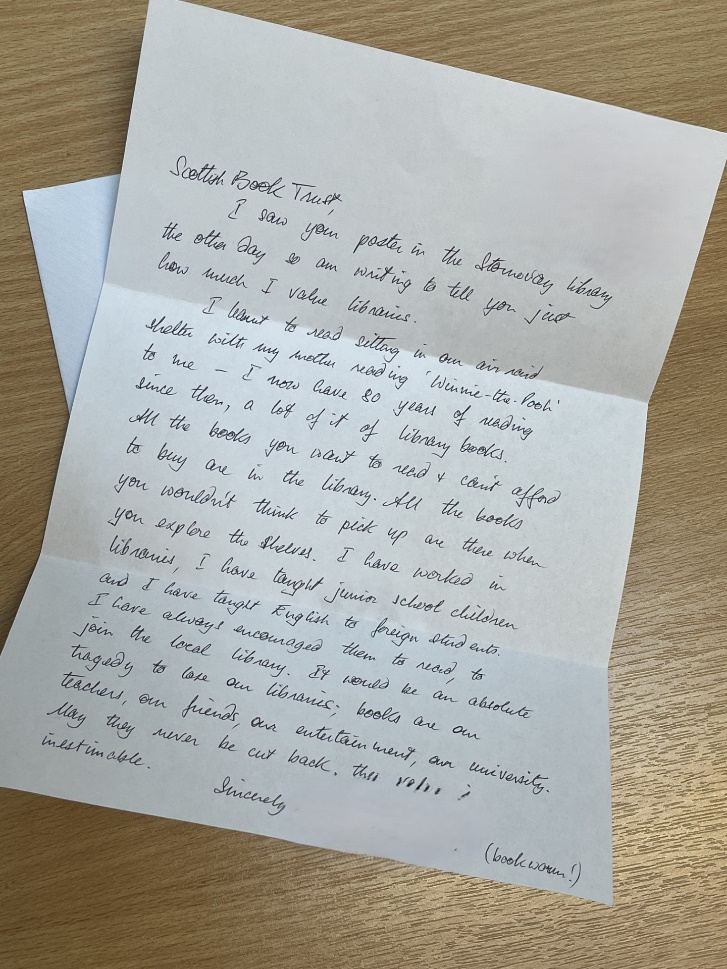 Scottish Book Trust,
I saw your poster in the Stornoway library
the other day so am writing to tell you just
how much I value libraries.
I learnt to read sitting in our air raid
shelter with my mother reading 'Winnie-the-Pooh'
to me – I now have 80 years of reading
since then, a lot of it of library books.
All the books you want to read & can't afford
to buy are in the library. All the books
you wouldn't think to pick up are there when
you explore the shelves. I have worked in
libraries, I have taught junior school children
and I have taught English to foreign students.
I have always encouraged them to read, to
join the local library. It would be an absolute
tragedy to lose our libraries; books are our
teachers, our friends, our entertainment, our university.
May they never be cut back. their value is
inestimable.
Sincerely
(bookworm!)